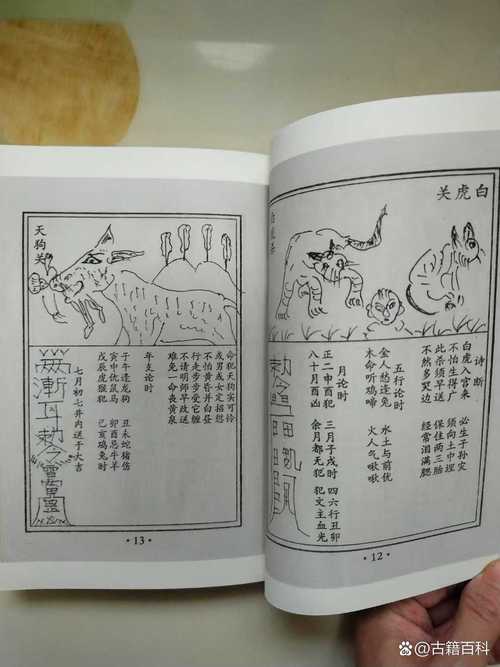 白虎关
白虎关
诗断
白虎入宫来　必生子孙灾
不怕生得广　须向土中埋
此杀须早送　保住两三胎
不然多哭边　经常泪满腮
五行论时
金人愁连兔　水土与前优
木命听鸡啼　火人气啾啾
月论时
正二申酉犯　三月子戌时　四六行丑卯
八十月酉凶　余月都无犯　犯文主血光
·12·
天狗关
命犯天狗实可怜
或男或女定招愆
不怕黄昏并白昼
行走步步被它缠
请明师早改送
难免一命丧黄泉
年支论时
子午逢龙狗　丑未蛇猪伤
寅申忧鼠马　卯酉忌牛羊
戌辰虎猴犯　巳亥鸡兔时
七月初七井内送于大吉
·13·
古籍百科